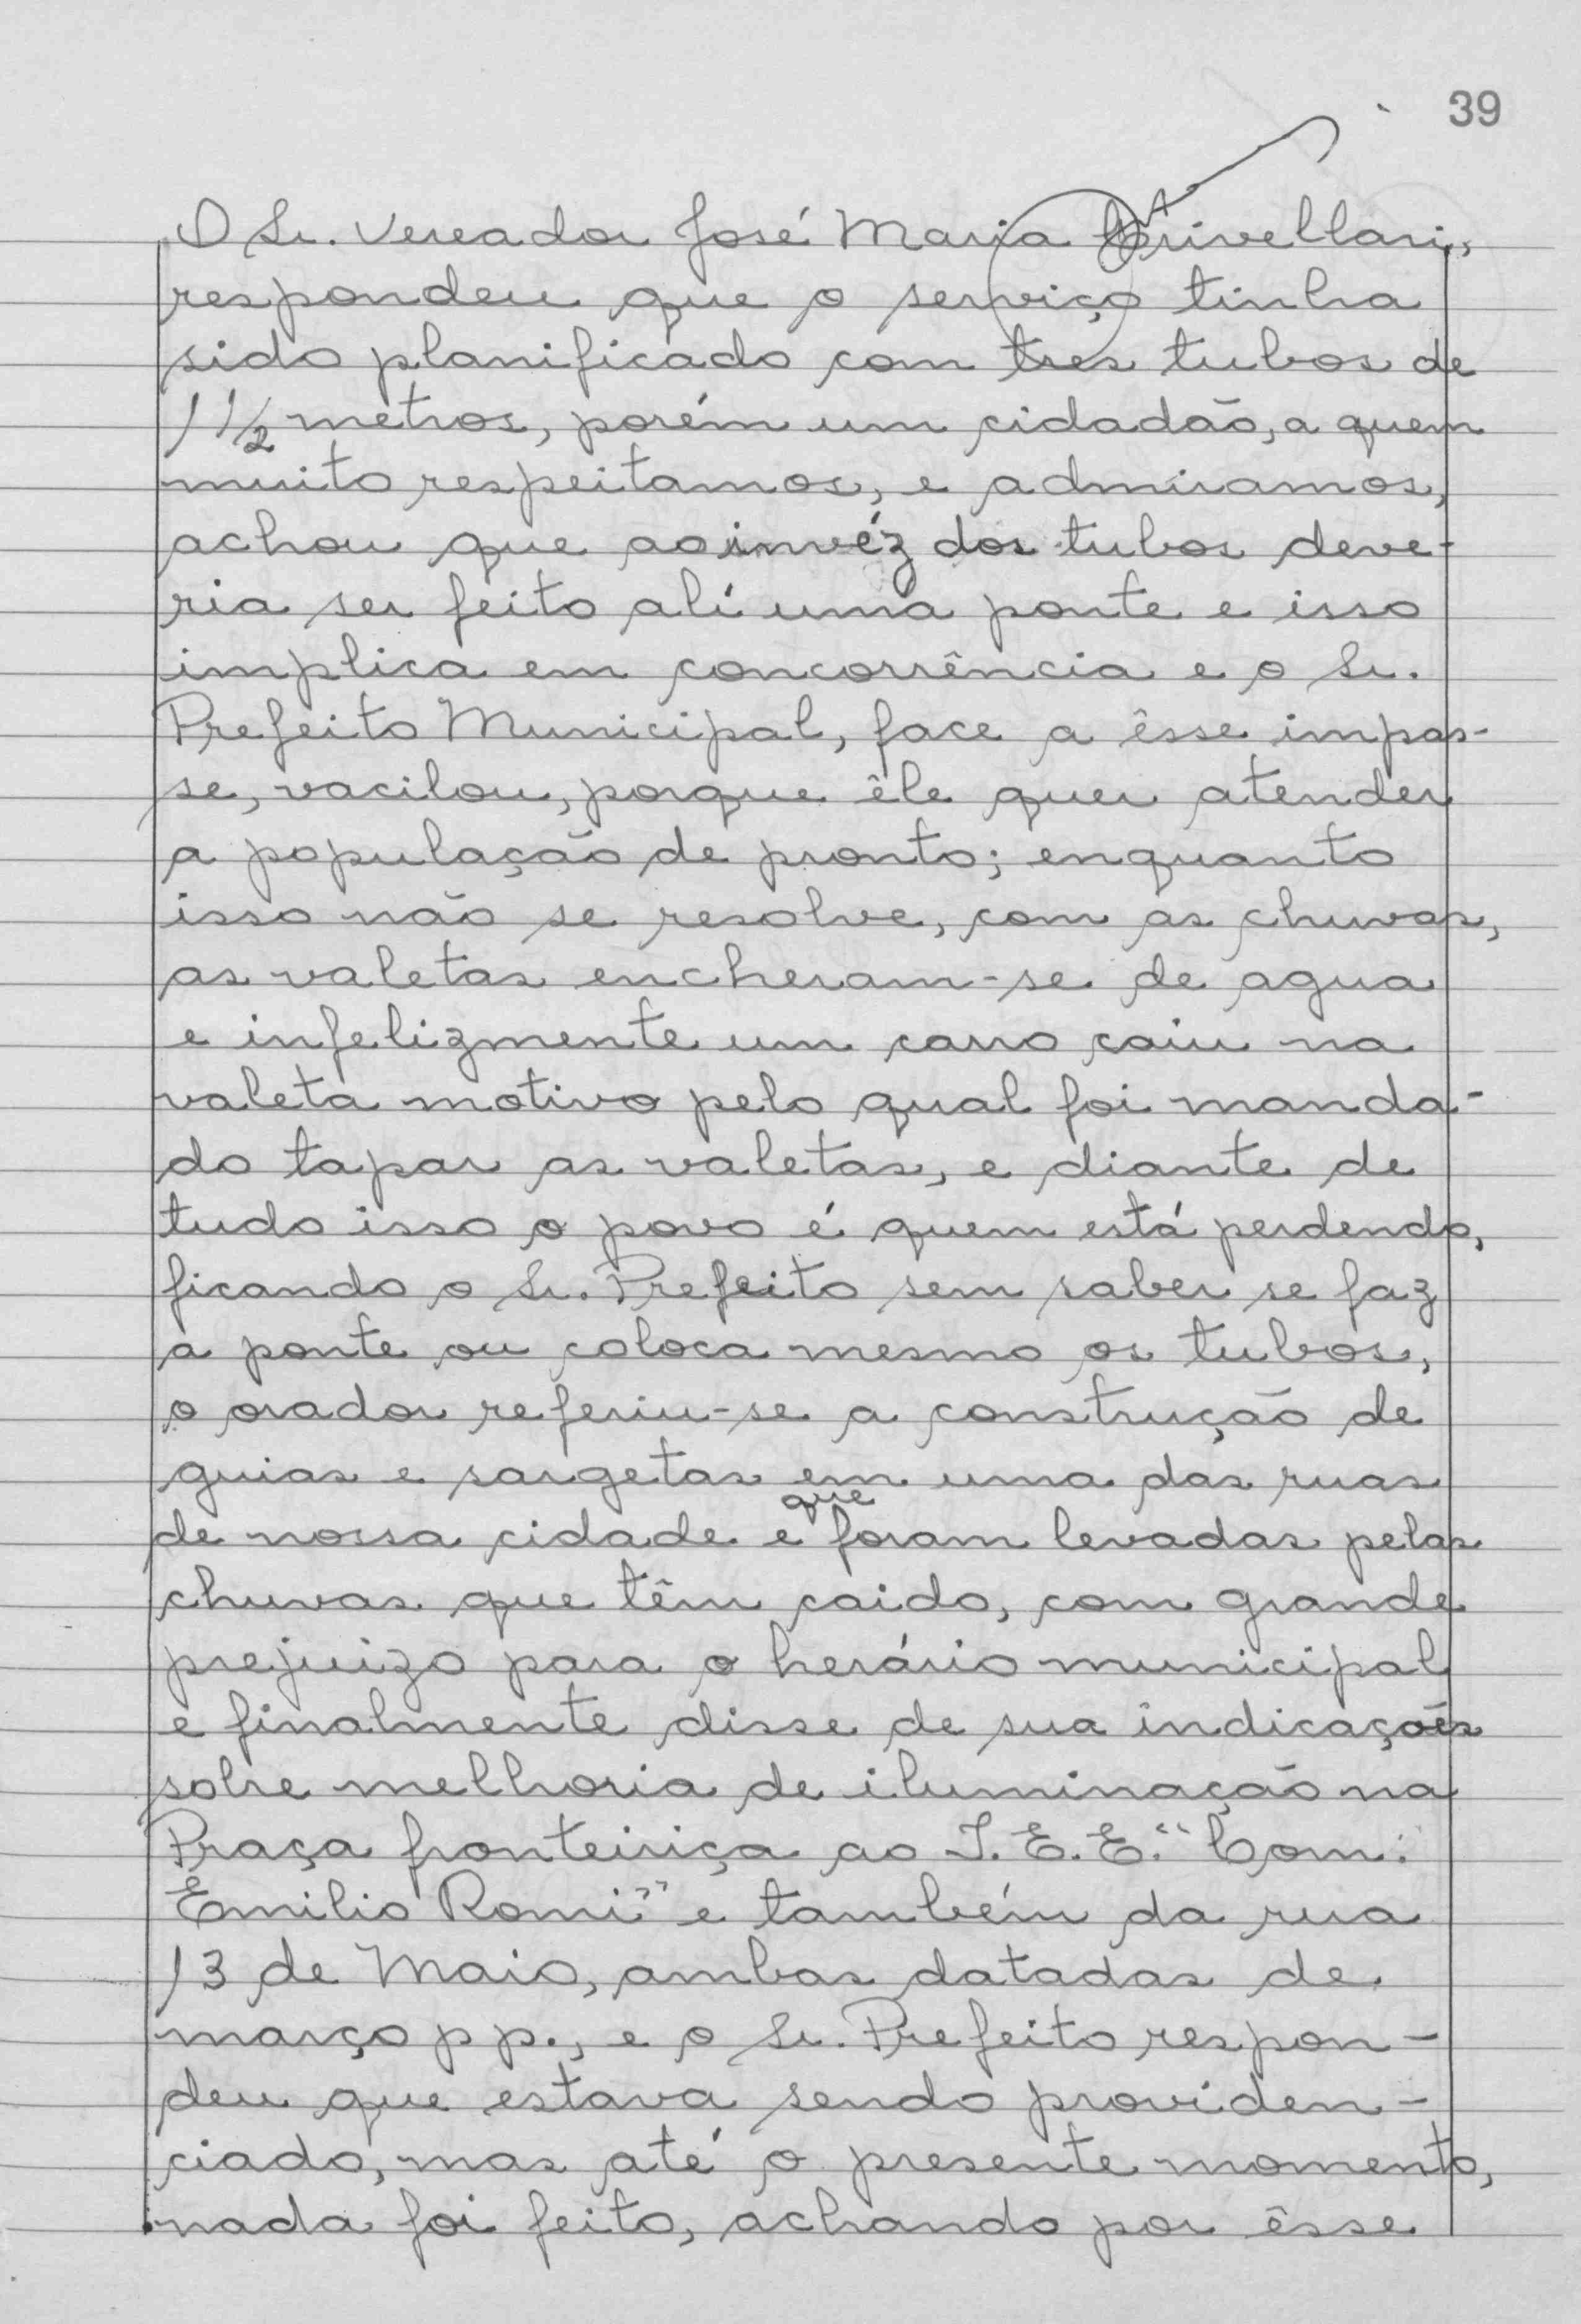 39
O Sr. Vereador José Maria Crivellari,
respondeu que o serviço tinha
sido planificado com tres tubos de
1 1/2 metros, porém um cidadão, a quem
muito respeitamos, e admiramos,
achou que ao invéz dos tubos deve-
ria ser feito alí uma ponte e isso
implica em concorrência e o Sr.
Prefeito Municipal, face a êsse impas-
se, vacilou, porque êle quer atender
a população de pronto; enquanto
isso não se resolve, com as chuvas,
as valetas encheram-se de agua
e infelizmente um carro caiu na
valeta motivo pelo qual foi manda-
do tapar as valetas, e diante de
tudo isso o povo é quem está perdendo,
ficando o Sr. Prefeito sem saber se faz
a ponte ou coloca mesmo os tubos,
o orador referiu-se a construção de
guias e sargetas em uma das ruas
de nossa cidade e que foram levadas pelas
chuvas que têm caido, com grande
prejuizo para o herário municipal
e finalmente disse de sua indicações
sobre melhoria de iluminação na
Praça fronteiriça ao I.E.E. "Com.
Emilio Romi" e também da rua
13 de Maio, ambas datadas de
março p p., e o Sr. Prefeito respon-
deu que estava sendo providen-
ciado, mas até o presente momento,
nada foi feito, achando por êsse